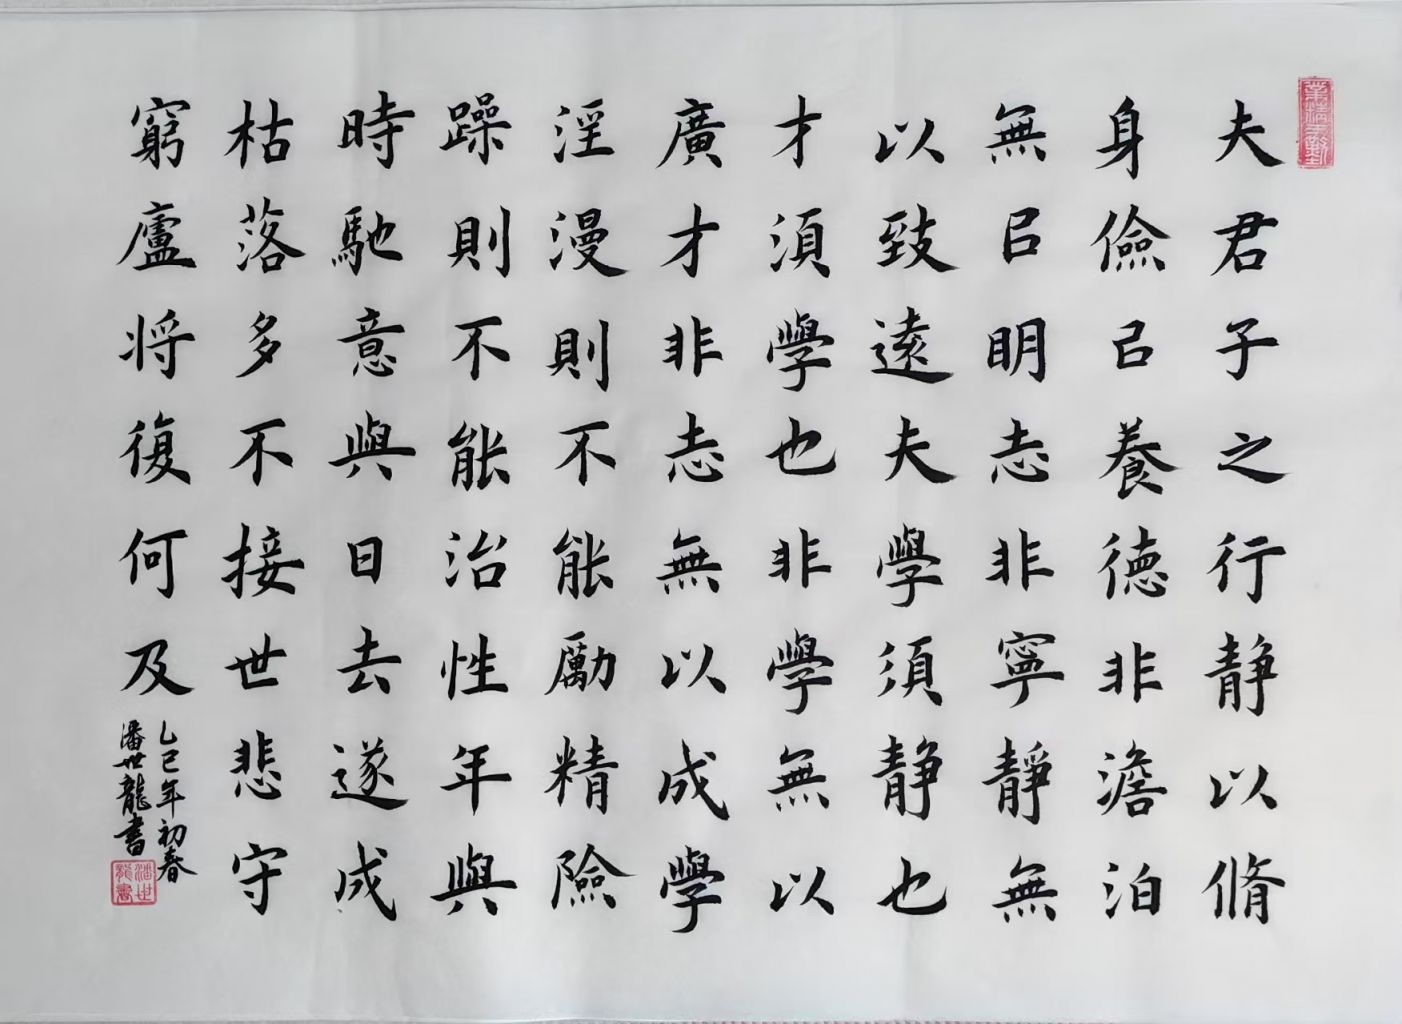 夫君子之行静以脩
身儉㠯養德非澹泊
無㠯明志非寧靜無
以致遠夫學須静也
才須學也非學無以
廣才非志無以成學
淫漫則不能勵精險
躁則不能治性年與
時馳意與日去遂成
枯落多不接世悲守
窮廬将復何及
乙巳年初春
潘世龍書
業精于勤
潘世龍書